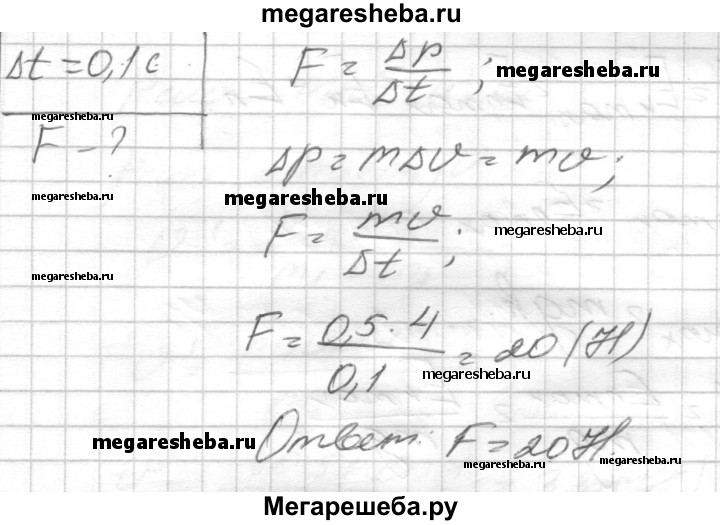 megaresheba.ru
Δt = 0,1 с
F = Δp/Δt ; megaresheba.ru
megaresheba.ru
F - ?
Δp = mΔv = mv;
megaresheba.ru megaresheba.ru
F = mv/Δt ; megaresheba.ru
megaresheba.ru
F = 0,5 · 4/0,1 = 20 (Н)
megaresheba.ru
megaresheba.ru Ответ: F = 20 Н.
megaresheba.ru megaresheba.ru
Мегарешеба.ру